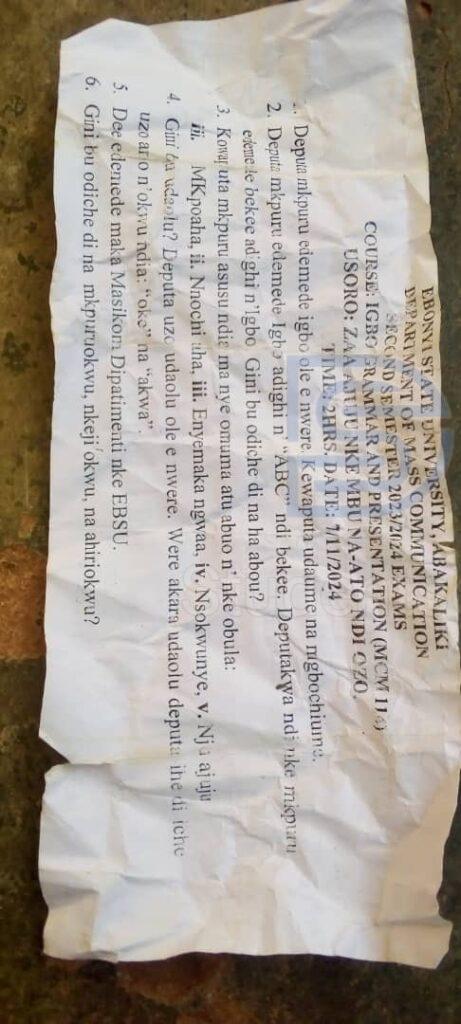 EBONYI STATE UNIVERSITY, ABAKALIKI
DEPARTMENT OF MASS COMMUNICATION
SECOND SEMESTER 2023/2024 EXAMS
COURSE: IGBO GRAMMAR AND PRESENTATION (MCM 114)
USORO: ZAA AJUJU NKE MBU NA-ATO NDI OZO.
TIME: 2HRS. DATE: 7/11/2024
1. Deputa mkpuru edemede igbo ole e nwere. Kewaputa udaume na mgbochiume.
2. Deputa mkpuru edemede Igbo adighi n' "ABC" ndi bekee. Deputakwa ndi nke mkpuru
edemede bekee adighi n'Igbo Gini bu odiche di na ha abou?
3. Kowaputa mkpuru asusu ndia ma nye omuma atu abuo n' nke obula:
iii. MKpoaha, ii. Nnochi aha, iii. Enyemaka ngwaa, iv. Nsokwunye, v. Nju ajuju
4. Gini bu udaolu? Deputa uzo udaolu ole e nwere. Were akara udaolu deputa ihe di iche
uzo ano n'okwu ndia: "oke" na "akwa".
5. Dee edemede maka Masikom Dipatimenti nke EBSU.
6. Gini bu odiche di na mkpuruokwu, nkeji okwu, na ahiriokwu?